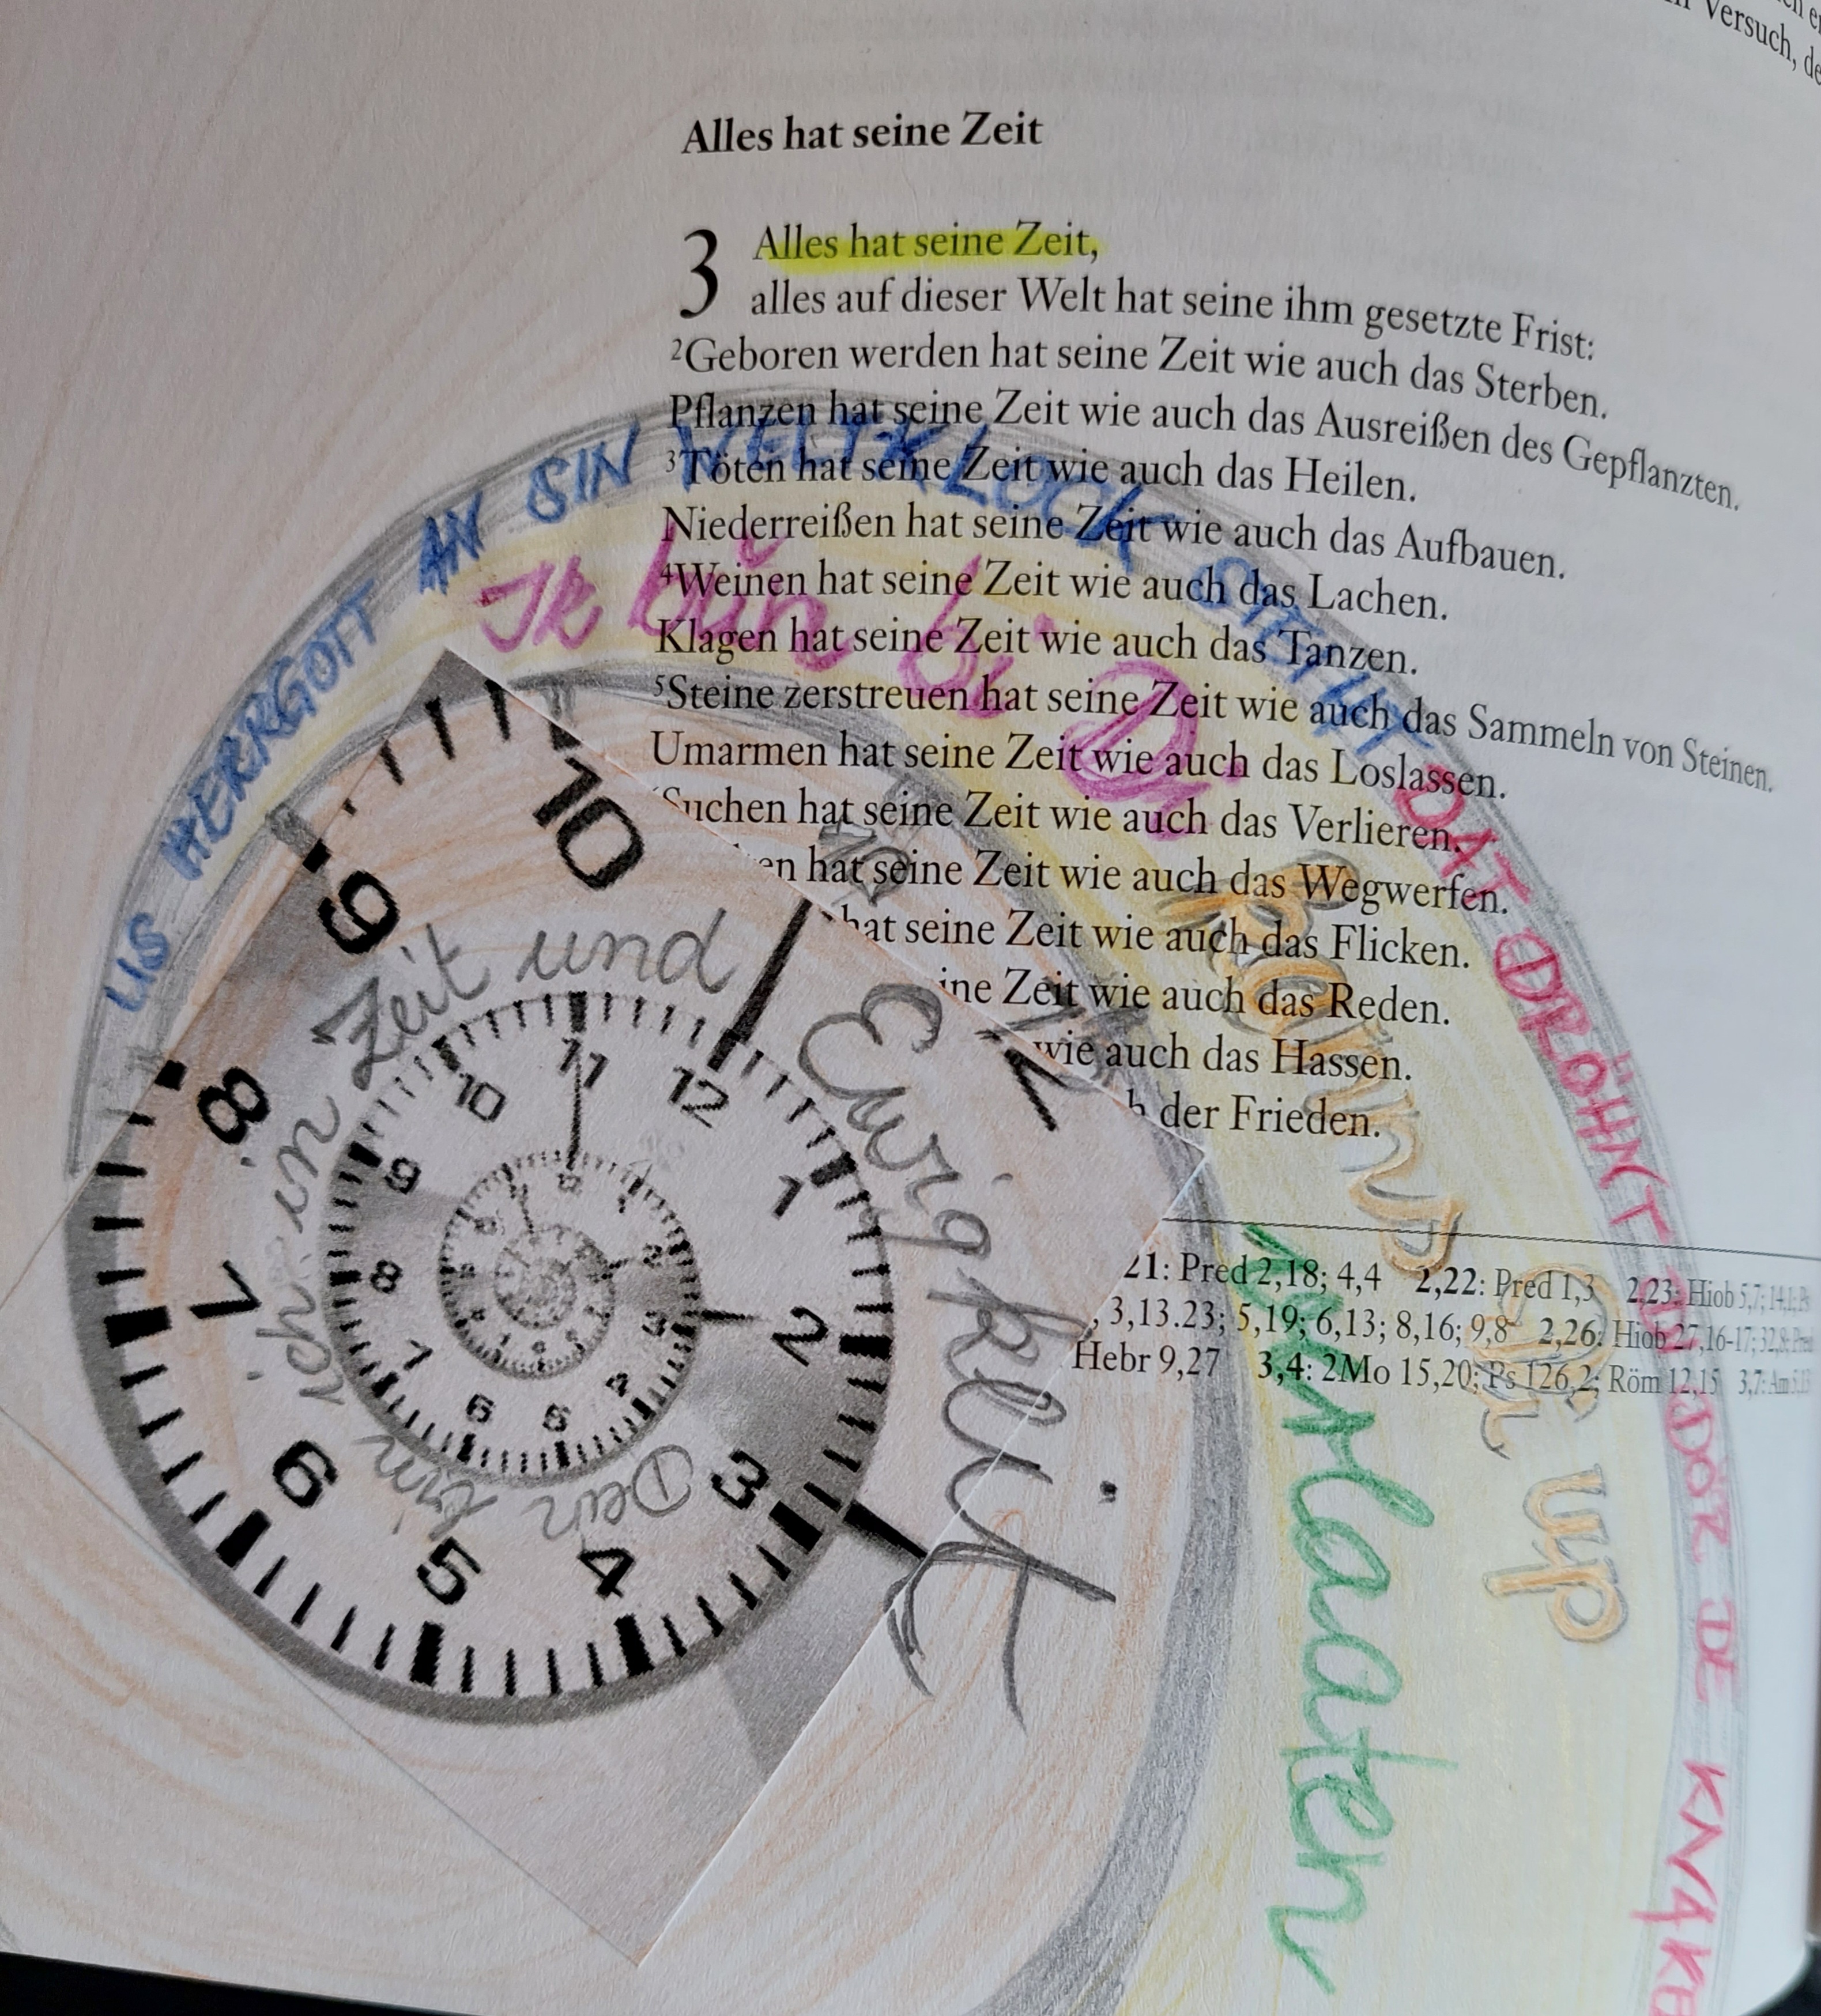 Versuch, de
Alles hat seine Zeit
3 Alles hat seine Zeit,
alles auf dieser Welt hat seine ihm gesetzte Frist:
2Geboren werden hat seine Zeit wie auch das Sterben.
Pflanzen hat seine Zeit wie auch das Ausreißen des Gepflanzten.
3Töten hat seine Zeit wie auch das Heilen.
Niederreißen hat seine Zeit wie auch das Aufbauen.
4Weinen hat seine Zeit wie auch das Lachen.
Klagen hat seine Zeit wie auch das Tanzen.
5Steine zerstreuen hat seine Zeit wie auch das Sammeln von Steinen.
Umarmen hat seine Zeit wie auch das Loslassen.
Suchen hat seine Zeit wie auch das Verlieren.
en hat seine Zeit wie auch das Wegwerfen.
hat seine Zeit wie auch das Flicken.
ine Zeit wie auch das Reden.
wie auch das Hassen.
h der Frieden.
21: Pred 2,18; 4,4 2,22: Pred 1,3 2,23: Hiob 5,7; 14,1;
, 3,13.23; 5,19; 6,13; 8,16; 9,8 2,26: Hiob 27,16-17; 32,8;
Hebr 9,27 3,4: 2Mo 15,20; Ps 126,2; Röm 12,15 3,7:
US HERRGOTT AN SIN WELTKLOCK STEIHT DAT DRÖHNT DÖR DE KNAKE
Ik bün bi Di
Di up
verlaaten
bin ich in Zeit und Ewigkeit
Dein
9 10 12
8 7 6 5 4 3 2 1
10 11 12
9 8 7 6 5 4 3 2